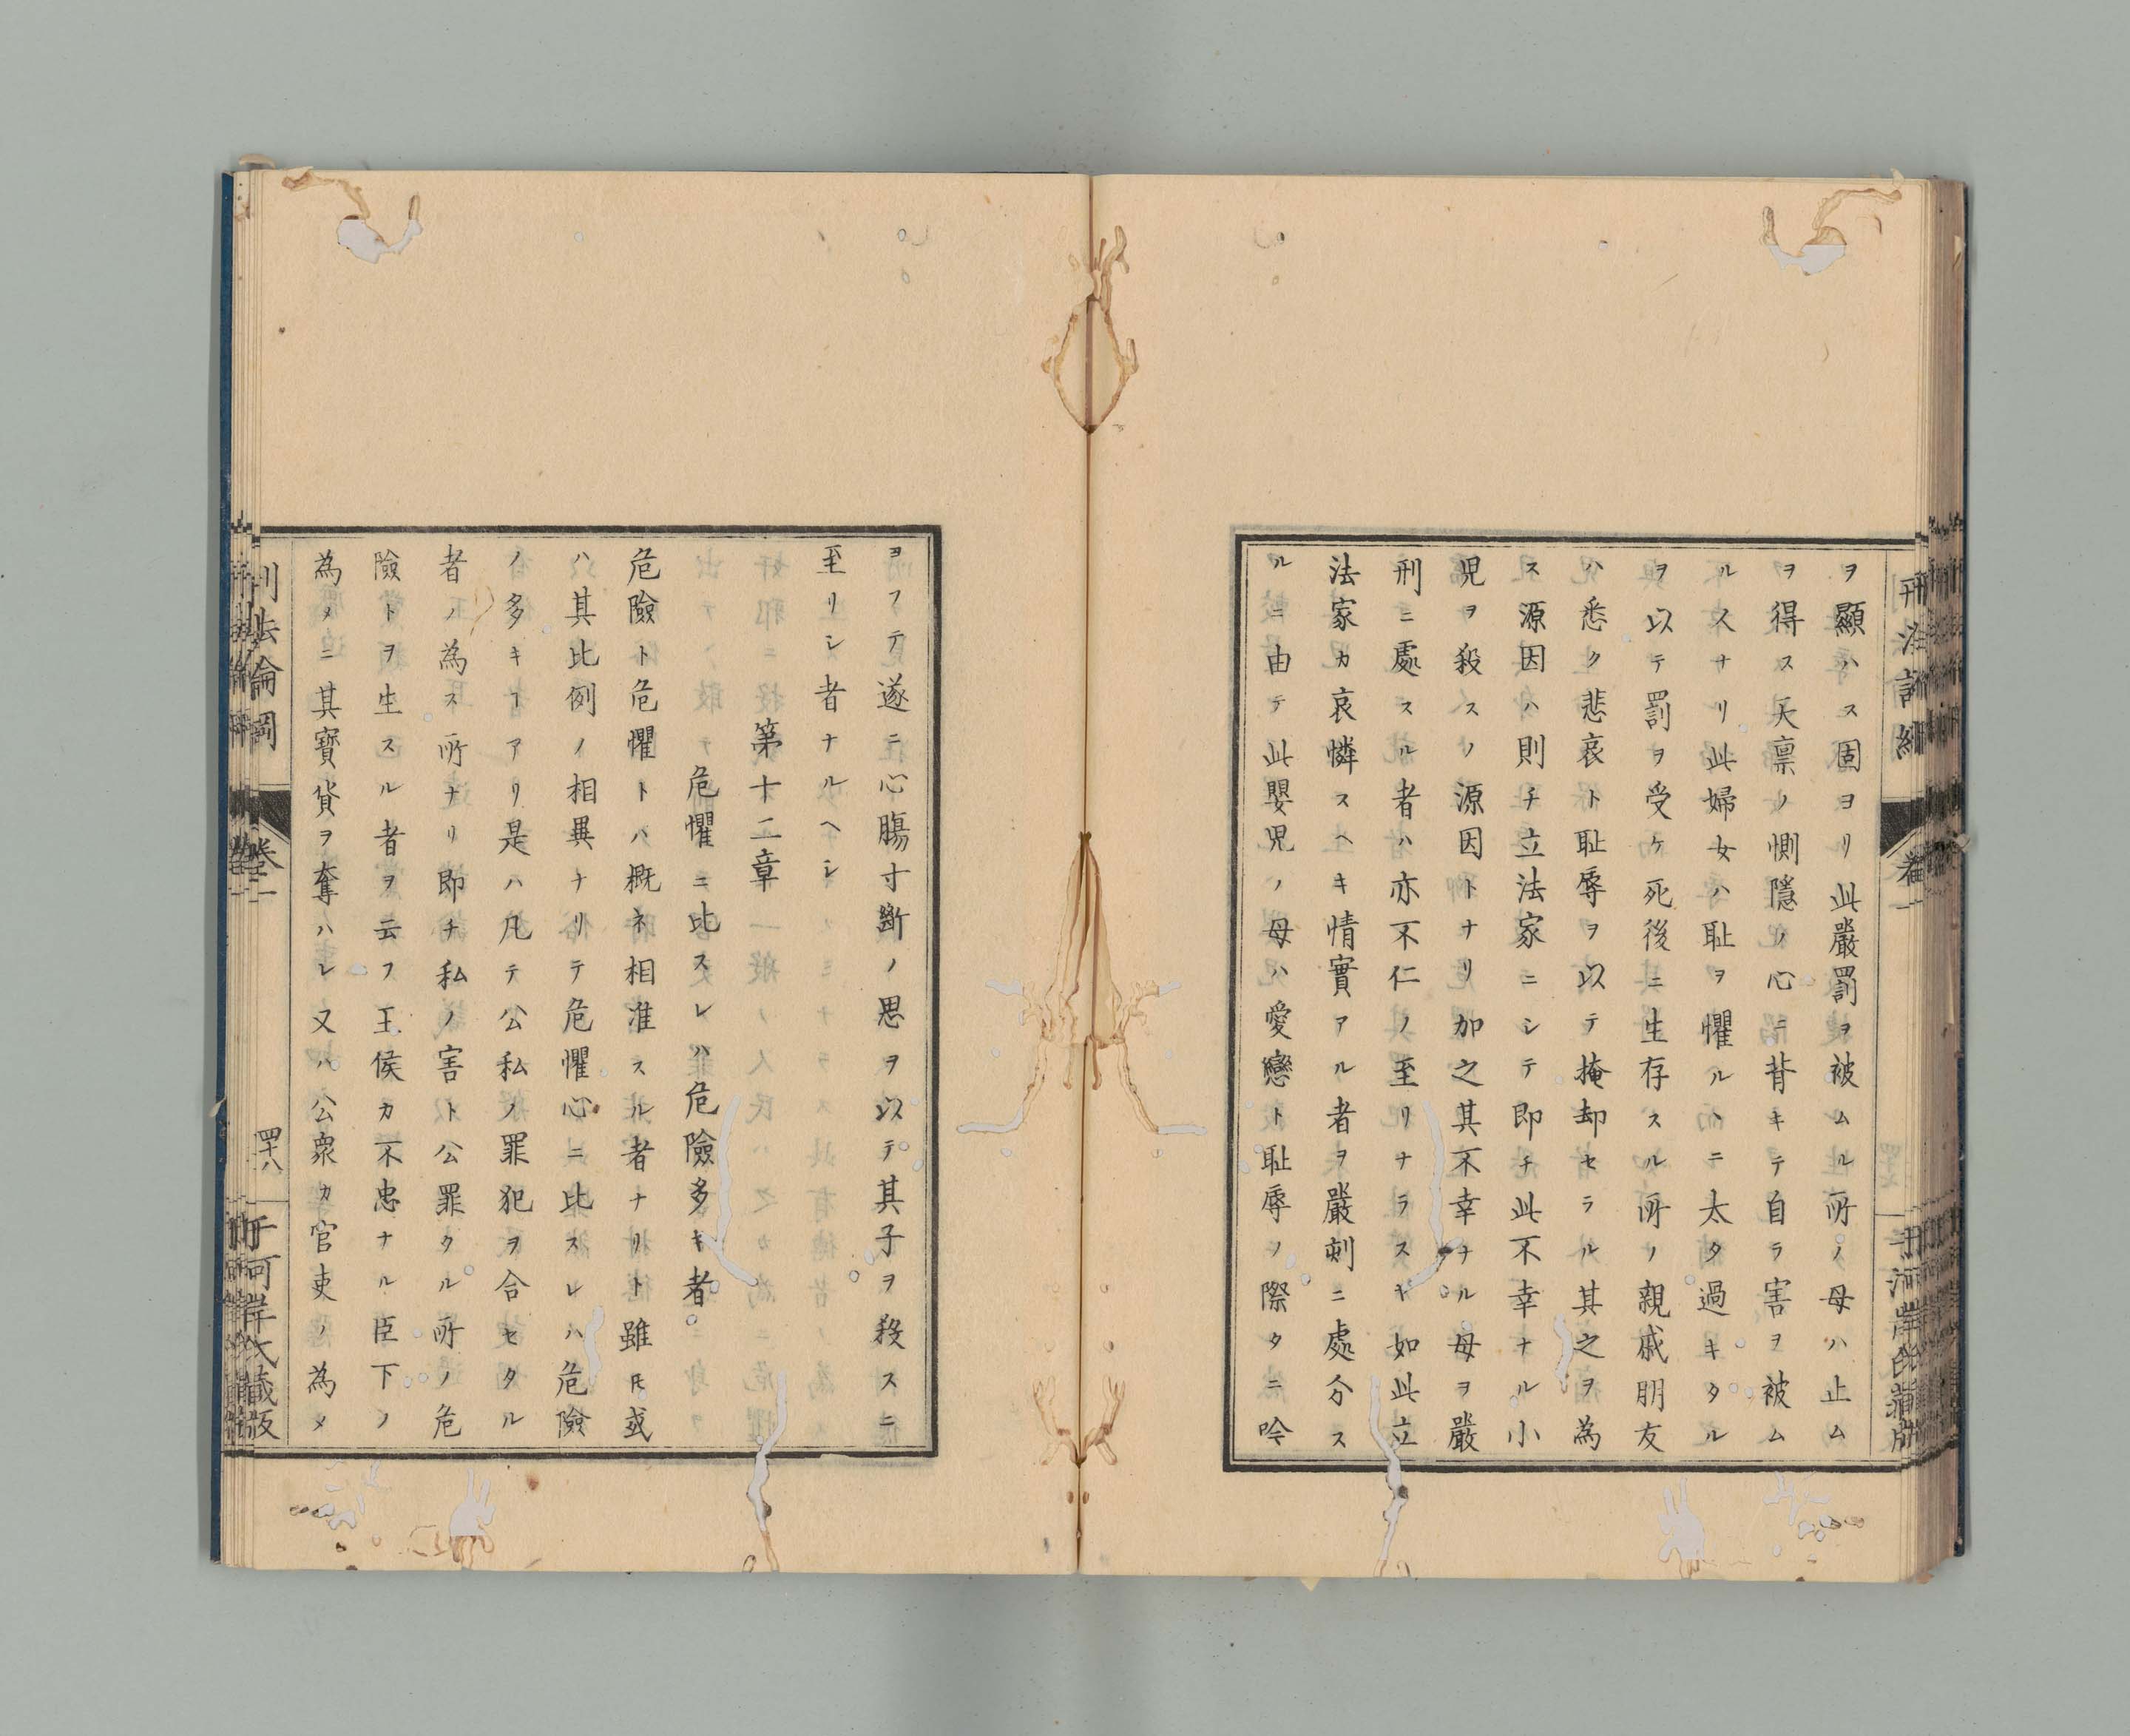 ヲ顯ハス固ヨリ此嚴罰ヲ被ムル所ノ母ハ止ム
ヲ得ス天禀ノ惻隱ノ心ニ背キテ自ラ害ヲ被ム
ルスナリ此婦女ハ耻ヲ懼ルヽニ太タ過キタル
ヲ以テ罰ヲ受ケ死後ニ生存スル所ノ親戚朋友
ハ悉ク悲哀ト耻辱ヲ以テ掩却セラル其之ヲ為
ス源因ハ則チ立法家ニシテ即チ此不幸ナル小
児ヲ殺スノ源因トナリ加之其不幸ナル母ヲ嚴
刑ニ處スル者ハ亦不仁ノ至リナラスヤ如此立
法家カ哀憐スヘキ情實アル者ヲ嚴刺ニ處分ス
ルニ由テ此嬰児ノ母ハ愛戀ト耻辱ノ際タニ吟
ヲフテ遂ニ心膓寸斷ノ思ヲ以テ其子ヲ殺スニ
至リシ者ナルヘシ
第十二章
危懼ニ比スレハ危險多キ者
危險ト危懼トハ概ネ相准スル者ナリト雖𪜈或
ハ其比例ノ相異ナリテ危懼心ニ比スレハ危險
ノ多キヿアリ是ハ凡テ公私ノ罪犯ヲ合セタル
者ノ為ス所ナリ即チ私ノ害ト公罪タル所ノ危
險トヲ生スル者ヲ云フ王侯カ不忠ナル臣下ノ
為メニ其寶貨ヲ奪ハレ又ハ公衆カ官吏ノ為メ
刑法論綱
卷一
四十八